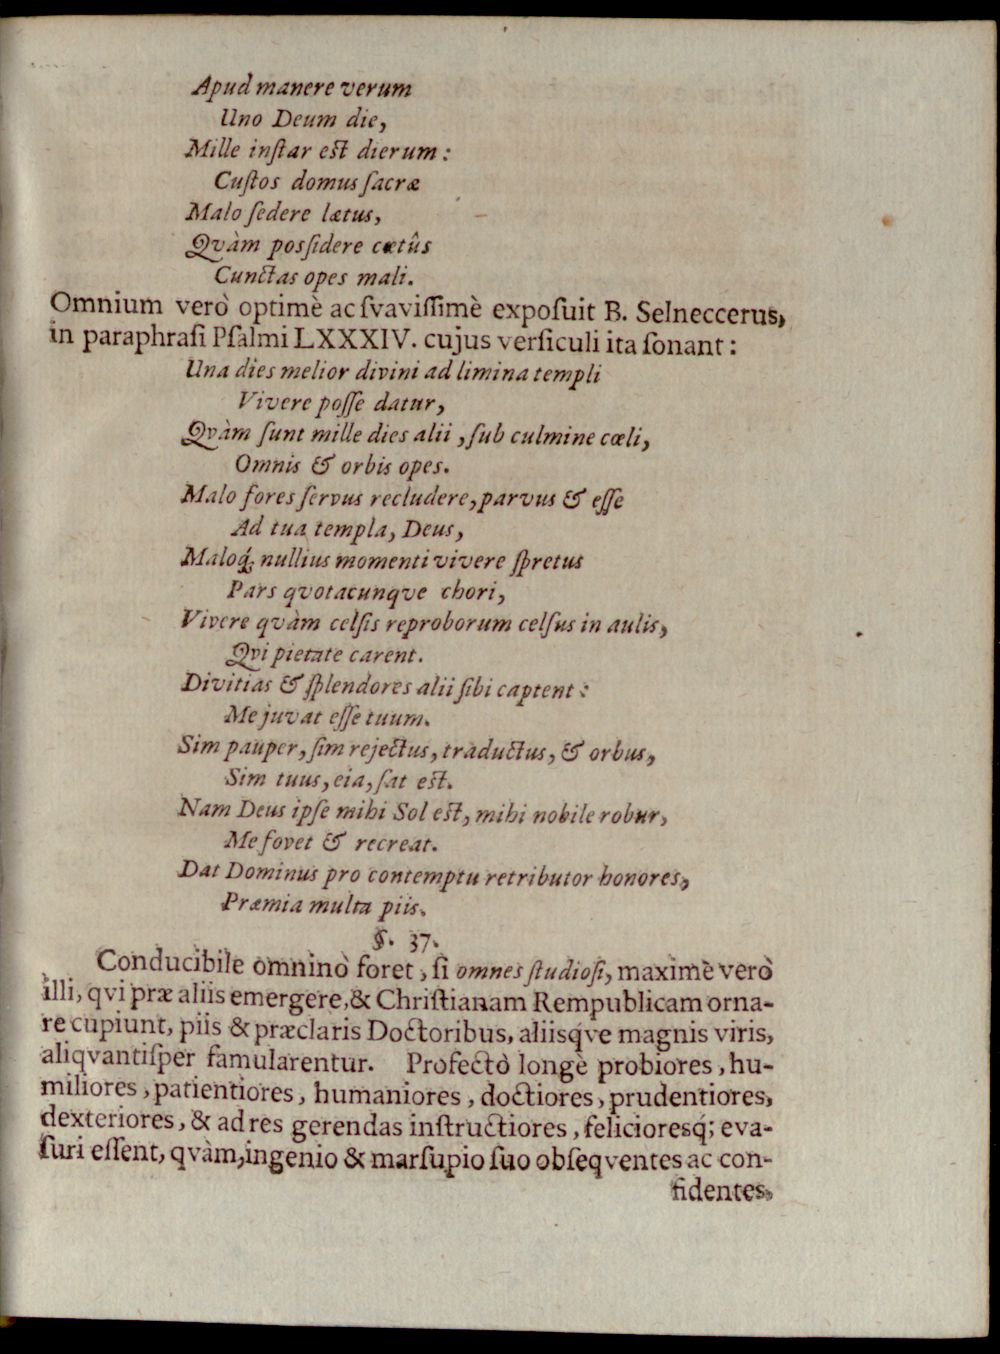 Apud manere verum
Uno Deum die,
Mille inſtar eſt dierum:
Cuſtos domus ſacræ
Malo ſedere lætus,
Qvàm poſſidere cœtûs
Cunctas opes mali.
Omnium verò optimè ac ſvaviſſimè expoſuit B. Selneccerus,
in paraphraſi Pſalmi LXXXIV. cujus verſiculi ita ſonant:
Una dies melior divini ad limina templi
Vivere poſſe datur,
Qvàm ſunt mille dies alii, ſub culmine cœli,
Omnis & orbis opes.
Malo fores ſervus recludere, parvus & eſſe
Ad tua templa, Deus,
Maloq́; nullius momenti vivere ſpretus
Pars qvotacunqve chori,
Vivere qvàm celſis reproborum celſus in aulis,
Qvi pietate carent.
Divitias & ſplendores alii ſibi captent:
Me juvat eſſe tuum.
Sim pauper, ſim rejectus, traductus, & orbus,
Sim tuus, eia, ſat eſt.
Nam Deus ipſe mihi Sol eſt, mihi nobile robur,
Me fovet & recreat.
Dat Dominus pro contemptu retributor honores,
Præmia multa piis.
§. 37.
Conducibile omninò foret, ſi omnes ſtudioſi, maximè verò
illi, qvi præ aliis emergere, & Chriſtianam Rempublicam orna-
re cupiunt, piis & præclaris Doctoribus, aliisqve magnis viris,
aliqvantiſper famularentur. Profectò longè probiores, hu-
miliores, patientiores, humaniores, doctiores, prudentiores,
dexteriores, & ad res gerendas inſtructiores, felicioresq́; eva-
ſuri eſſent, qvàm, ingenio & marſupio ſuo obſeqventes ac con-
fidentes,